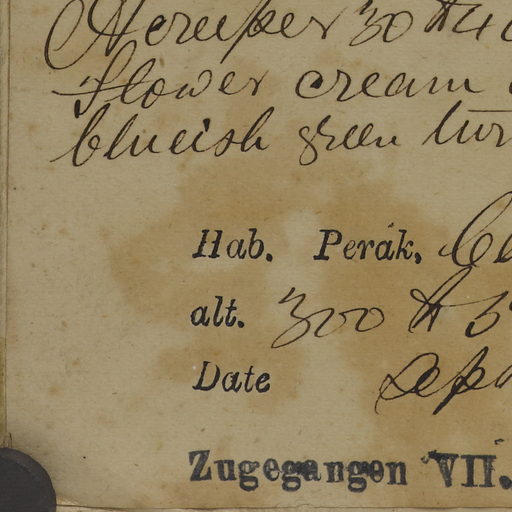 Acreeper 30 ft 4
flower cream
blueish green tur
Hab. Perák.
alt. 300 ft 5
Date
Zugegangen VII.